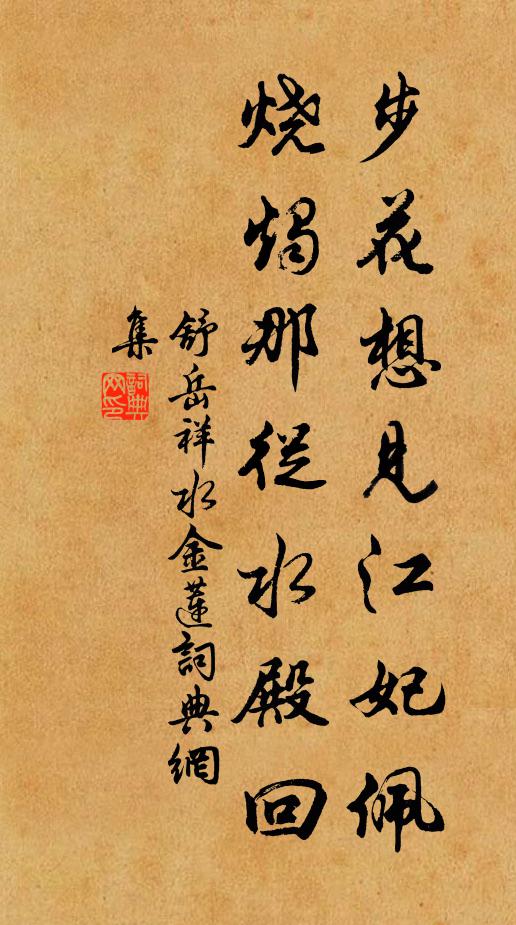 步花想見江妃佩
烧燭那從水殿回
舒岳祥水金蓮詞典網
集
詞典网印